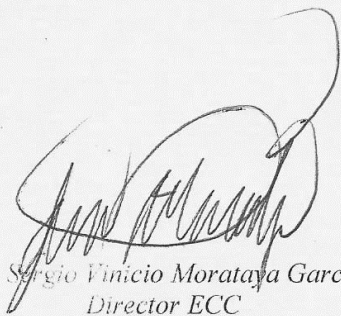 Sergio Vinicio Morataya Garc
Director ECC